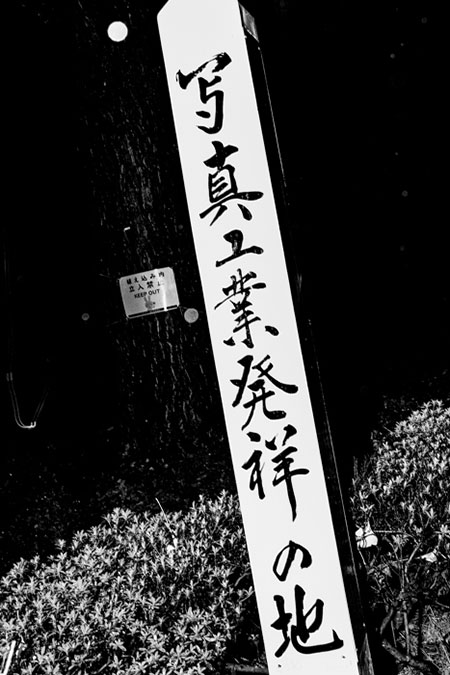 写真工業発祥の地
植え込み内
立入禁止
KEEP OUT